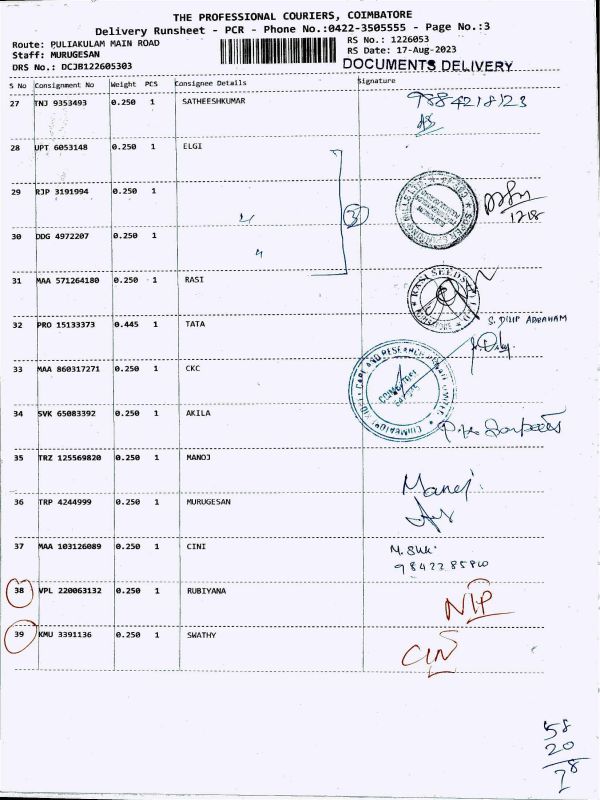 THE PROFESSIONAL COURIERS, COIMBATORE
Delivery Runsheet - PCR - Phone No.:0422-3505555 - Page No.:3
Route: PULIAKULAM MAIN ROAD
RS No.: 1226053
Staff: MURUGESAN
RS Date: 17-Aug-2023
DRS No.: DCJB122605303
DOCUMENTS DELIVERY
S No Consignment No Weight PCS Consignee Details Signature
27 TNJ 9353493 0.250 1 SATHEESHKUMAR
28 UPT 6053148 0.250 1 ELGI
29 RJP 3191994 0.250 1
3
30 DDG 4972207 0.250 1
31 MAA 571264180 0.250 1 RASI
32 PRO 15133373 0.445 1 TATA
S. DILIP ABRAHAM
33 MAA 860317271 0.250 1 CKC
34 SVK 65083392 0.250 1 AKILA
35 TRZ 125569820 0.250 1 MANOJ
Manoj
36 TRP 4244999 0.250 1 MURUGESAN
37 MAA 103126089 0.250 1 CINI
38 VPL 220063132 0.250 1 RUBIYANA
NIP
39 KMU 3391136 0.250 1 SWATHY
58
20
78